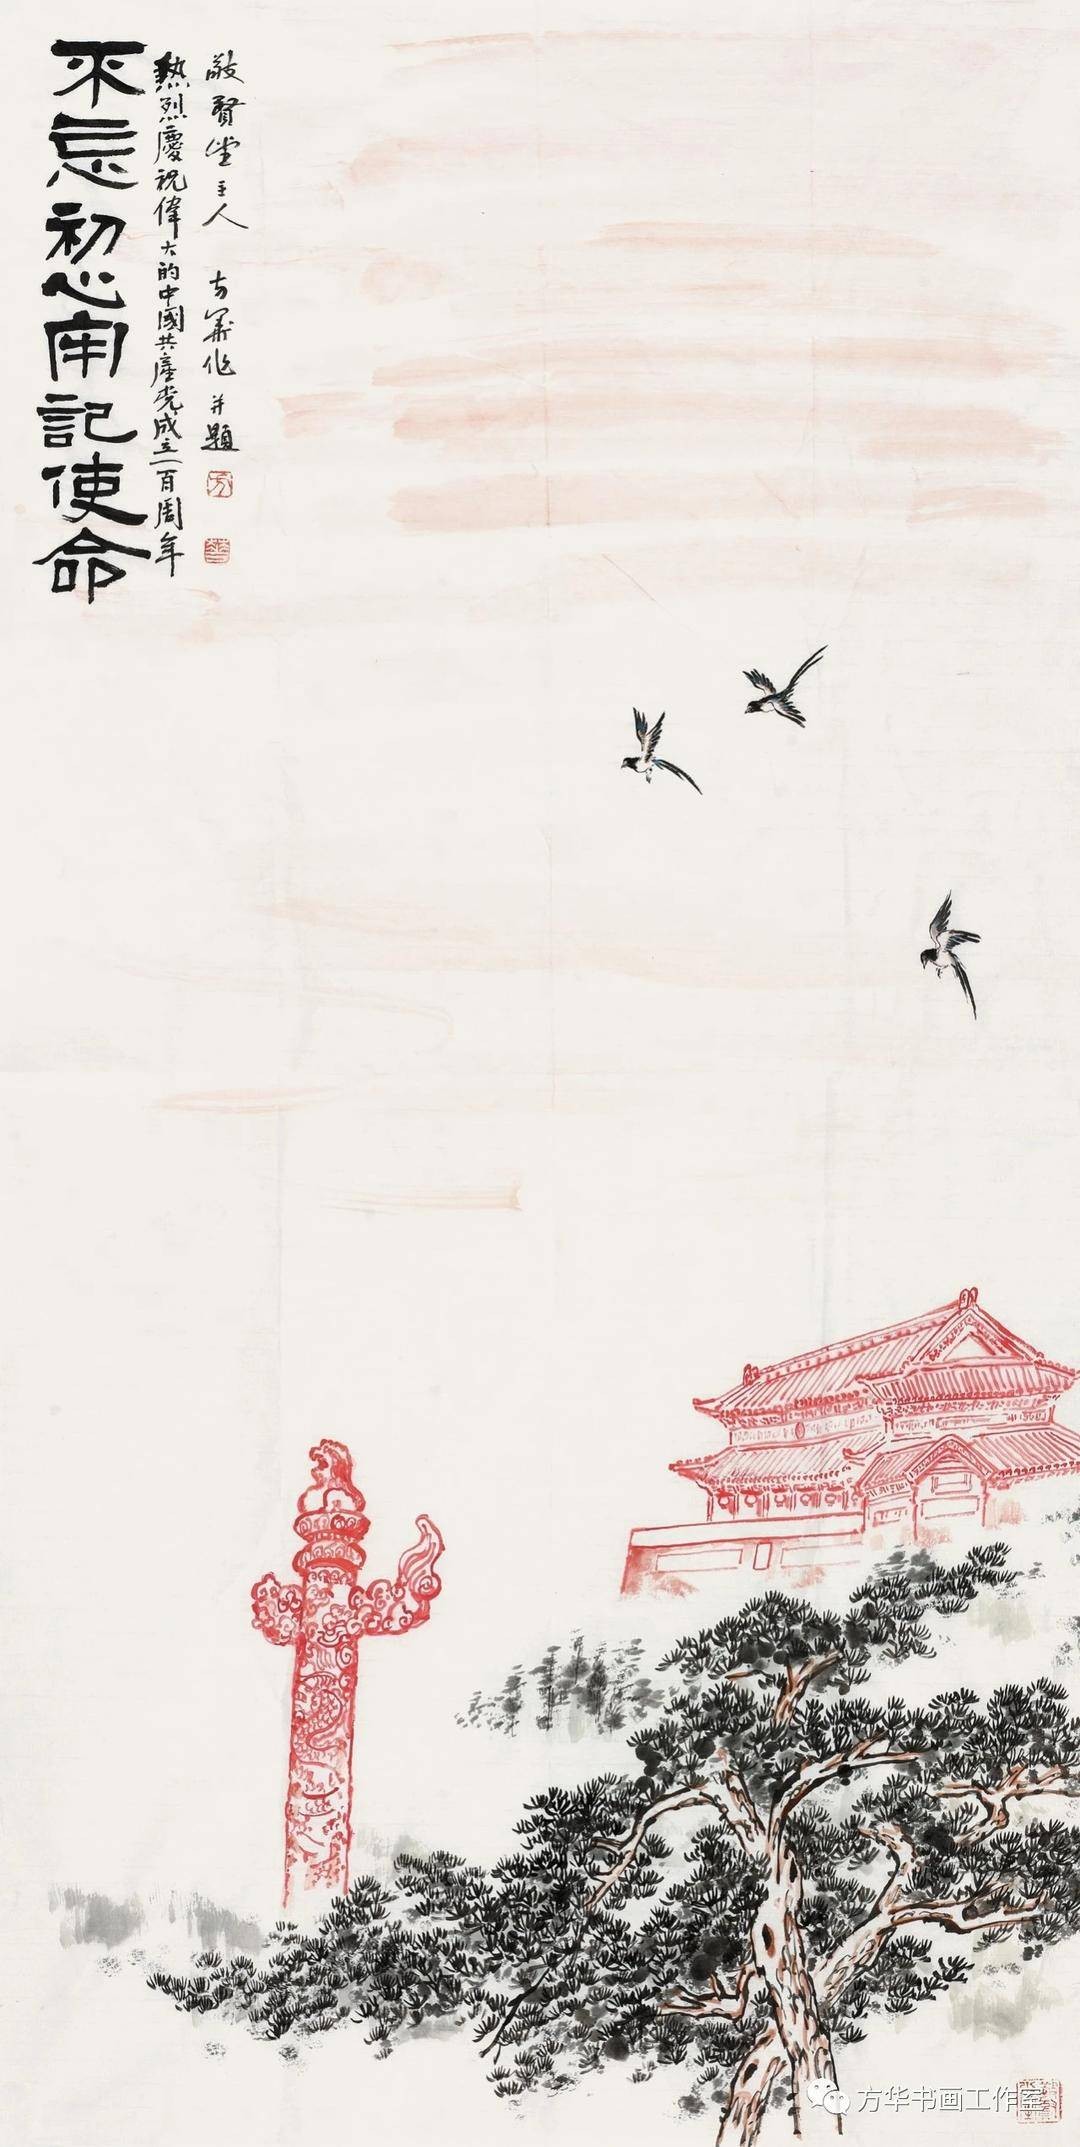 不忘初心牢記使命
熱烈慶祝偉大的中國共產党成立一百周年
敬賢堂主人 方華作并題
方
華
方华书画工作室